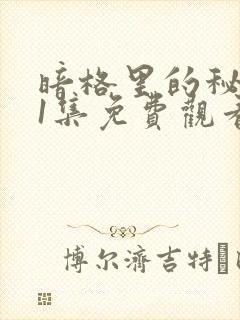 暗格里的秘
1集免費觀看
博尔濟吉特